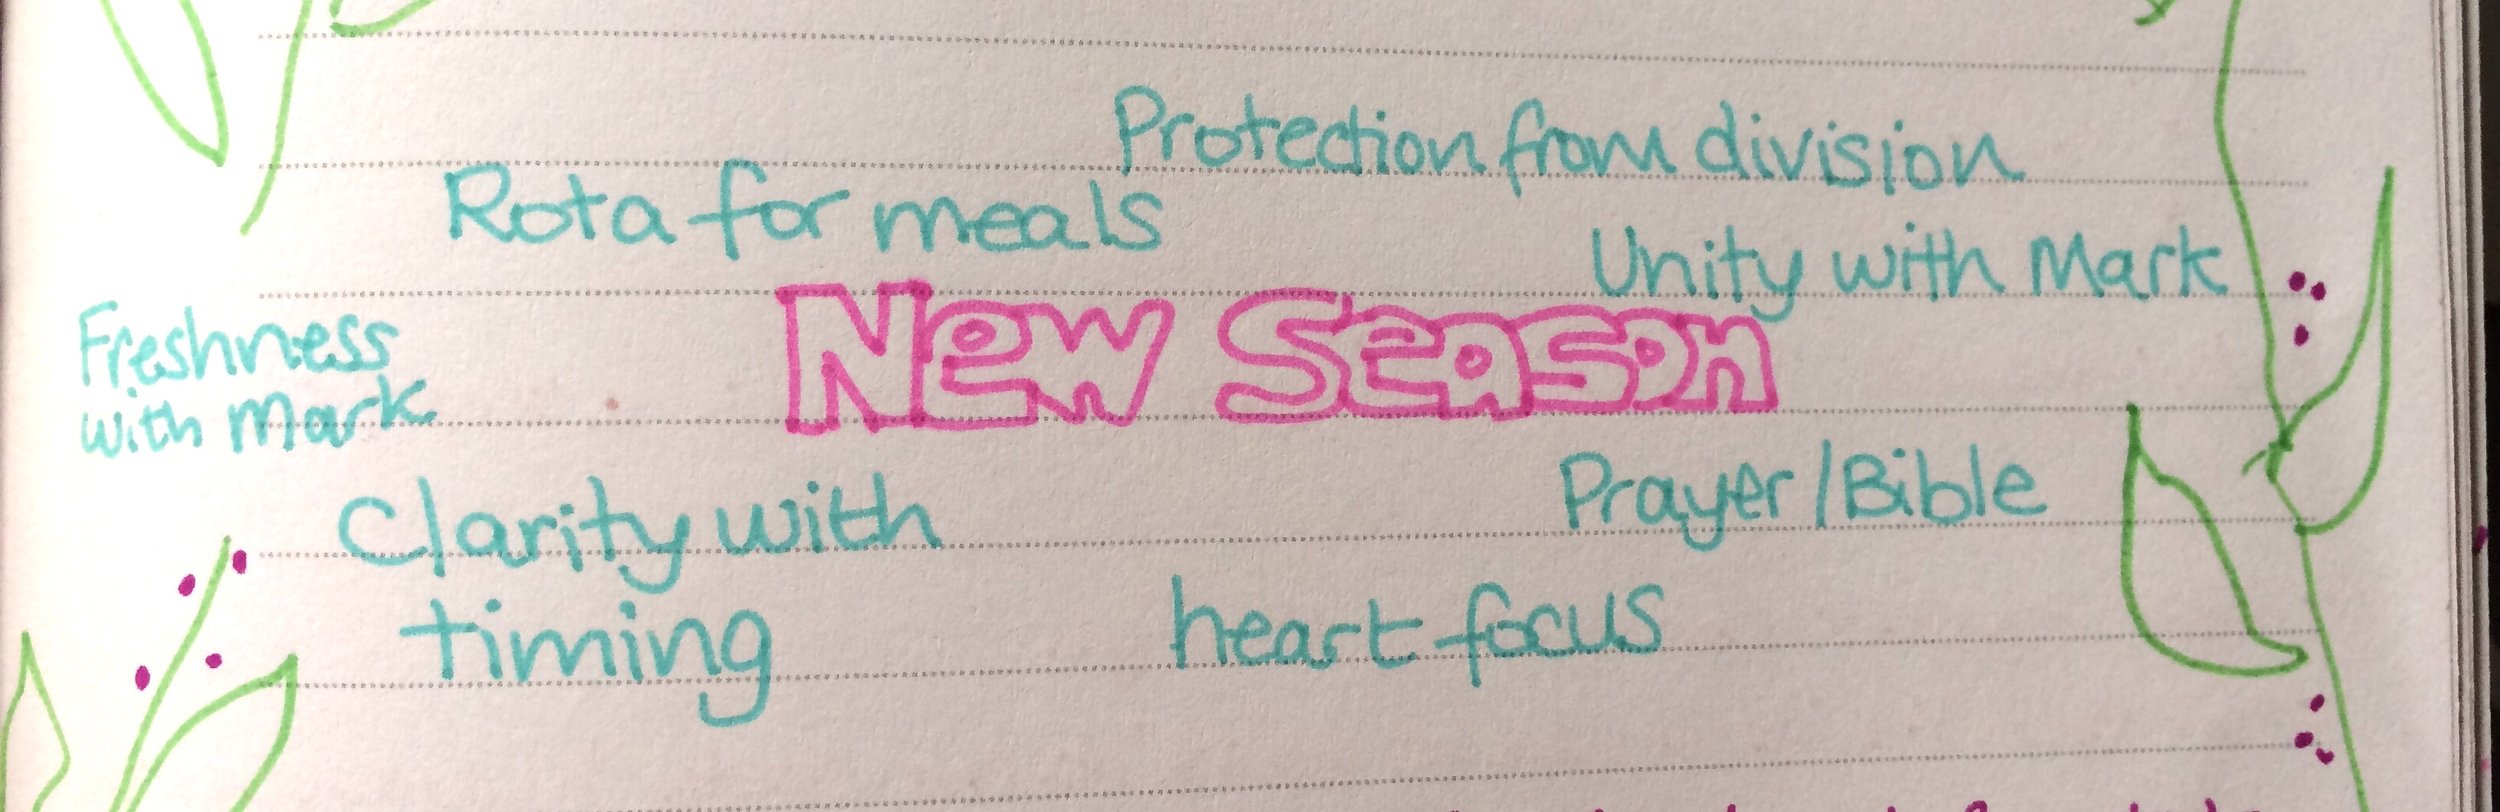 Protection from division
Rota for meals
Unity with Mark
New Season
Freshness
with Mark
Prayer/Bible
Clarity with
timing
heart focus